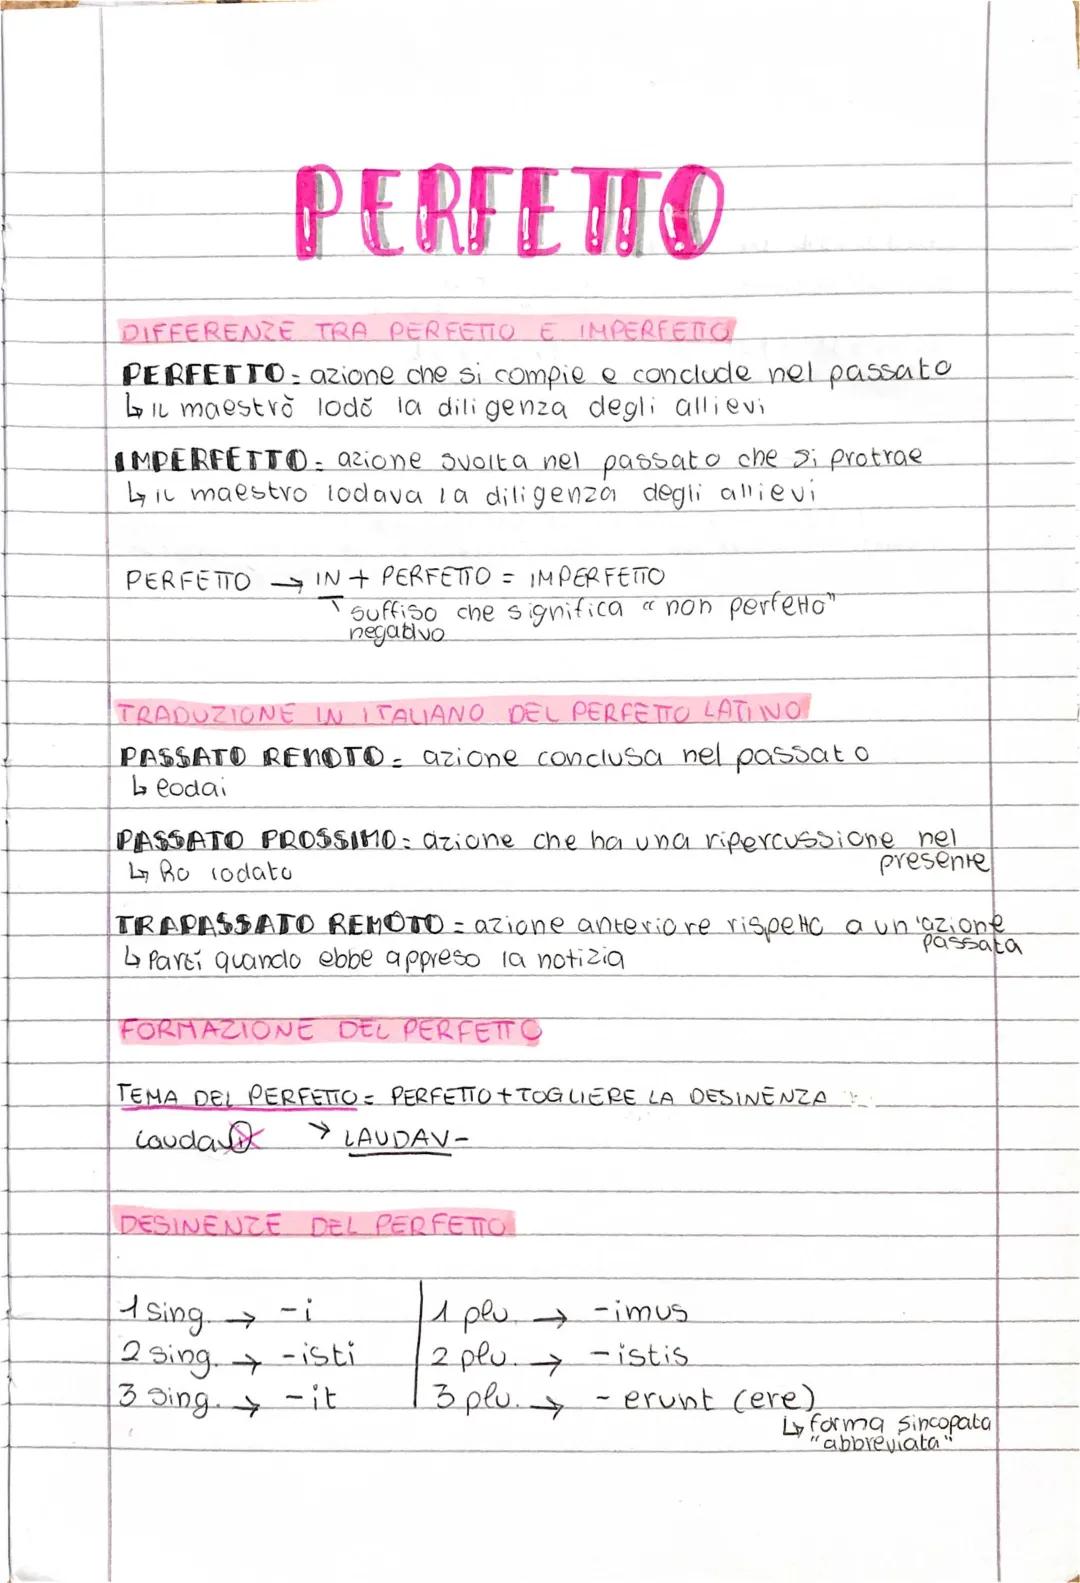 PERFETTO
DIFFERENZE TRA PERFETTO E IMPERFETTO
PERFETTO = azione che si compie e conclude nel passato
↳ il maestro lodò la diligenza degli allievi
IMPERFETTO = azione svolta nel passato che si protrae
↳ il maestro lodava la diligenza degli allievi
PERFETTO → IN + PERFETTO = IMPERFETTO
suffiso che significa "non perfetto"
negativo
TRADUZIONE IN ITALIANO DEL PERFETTO LATINO
PASSATO REMOTO = azione conclusa nel passato
↳ lodai
PASSATO PROSSIMO = azione che ha una ripercussione nel
presente
↳ Ho lodato
TRAPASSATO REMOTO = azione anteriore rispetto a un'azione
passata
↳ Partì quando ebbe appreso la notizia
FORMAZIONE DEL PERFETTO
TEMA DEL PERFETTO = PERFETTO + TOGLIERE LA DESINENZA
Laudavi → LAUDAV-
DESINENZE DEL PERFETTO
1 sing. → -i 1 plu. → -imus
2 sing. → -isti 2 plu. → -istis
3 sing. → -it 3 plu. → -erunt (ere)
↳ forma sincopata
"abbreviata"